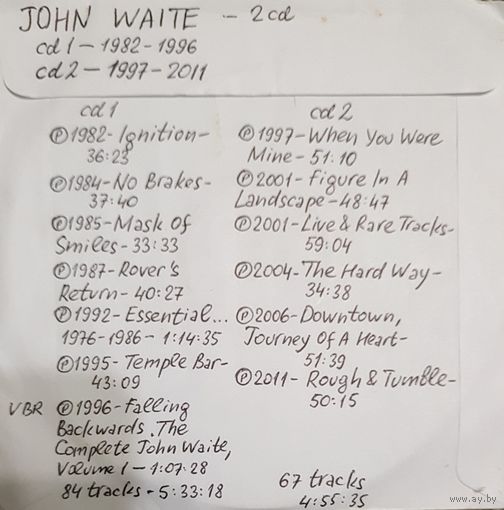 JOHN WAITE - 2cd
cd1 - 1982-1996
cd2 - 1997-2011
cd1
Ⓟ1982- Ignition-
36:23
Ⓟ1984-No Brakes-
37:40
Ⓟ1985-Mask Of
Smiles-33:33
Ⓟ1987-Rover's
Return-40:27
Ⓟ1992-Essential...
1976-1986-1:14:35
Ⓟ1995-Temple Bar-
43:09
VBR Ⓟ1996-Falling
Backwards. The
Complete John Waite,
Volume 1-1:07:28
84 tracks-5:33:18
cd2
Ⓟ1997-When You Were
Mine-51:10
Ⓟ2001-Figure In A
Landscape-48:47
Ⓟ2001-Live & Rare Tracks-
59:04
Ⓟ2004-The Hard Way-
34:38
Ⓟ2006-Downtown,
Journey Of A Heart-
51:39
Ⓟ2011-Rough & Tumble-
50:15
67 tracks
4:55:35
www.ay.by